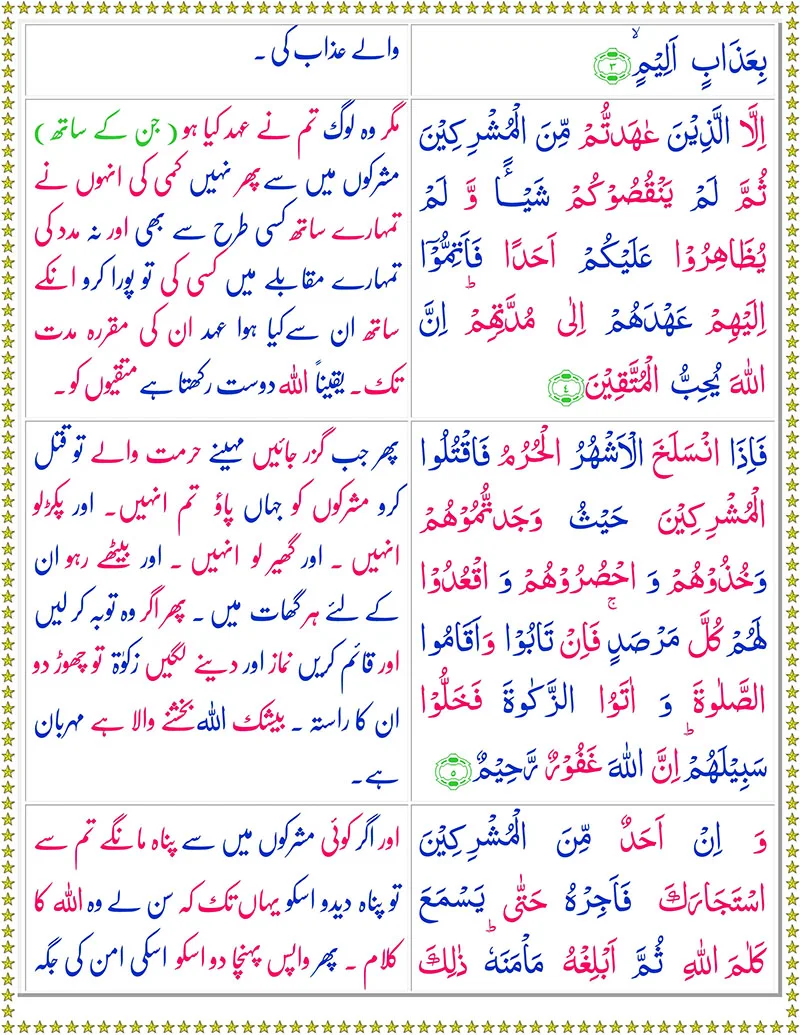 بِعَذَابٍ اَلِيْمٍۙ ﴿٣﴾
والے عذاب کی ۔
اِلَّا الَّذِيْنَ عٰهَدْتُّمْ مِّنَ الْمُشْرِكِيْنَ
ثُمَّ لَمْ يَنْقُصُوْكُمْ شَيْـًٔا وَّ لَمْ
يُظَاهِرُوْا عَلَيْكُمْ اَحَدًا فَاَتِمُّوْۤا
اِلَيْهِمْ عَهْدَهُمْ اِلٰى مُدَّتِهِمْؕ اِنَّ
اللّٰهَ يُحِبُّ الْمُتَّقِيْنَ ﴿٤﴾
مگر وہ لوگ تم نے عہد کیا ہو ( جن کے ساتھ )
مشرکوں میں سے پھر نہیں کمی کی انہوں نے
تمہارے ساتھ کسی طرح سے بھی اور نہ مدد کی
تمہارے مقابلے میں کسی کی تو پورا کرو انکے
ساتھ ان سے کیا ہوا عہد ان کی مقررہ مدت
تک۔ یقیناً اللہ دوست رکھتا ہے متقیوں کو۔
فَاِذَا انْسَلَخَ الْاَشْهُرُ الْحُرُمُ فَاقْتُلُوا
الْمُشْرِكِيْنَ حَيْثُ وَجَدْتُّمُوْهُمْ
وَخُذُوْهُمْ وَ احْصُرُوْهُمْ وَ اقْعُدُوْا
لَهُمْ كُلَّ مَرْصَدٍۚ فَاِنْ تَابُوْا وَاَقَامُوا
الصَّلٰوةَ وَ اٰتَوُا الزَّكٰوةَ فَخَلُّوْا
سَبِيْلَهُمْؕ اِنَّ اللّٰهَ غَفُوْرٌ رَّحِيْمٌ ﴿٥﴾
پھر جب گزر جائیں مہینے حرمت والے تو قتل
کرو مشرکوں کو جہاں پاؤ تم انہیں۔ اور پکڑلو
انہیں ۔ اور گھیر لو انہیں ۔ اور بیٹھے رہو ان
کے لئے ہر گھات میں ۔ پھر اگر وہ توبہ کر لیں
اور قائم کریں نماز اور دینے لگیں زکوٰۃ تو چھوڑ دو
ان کا راستہ ۔ بیشک اللہ بخشنے والا ہے مہربان
ہے۔
وَ اِنْ اَحَدٌ مِّنَ الْمُشْرِكِيْنَ
اسْتَجَارَكَ فَاَجِرْهُ حَتّٰى يَسْمَعَ
كَلٰمَ اللّٰهِ ثُمَّ اَبْلِغْهُ مَاْمَنَهٗؕ ذٰلِكَ
اور اگر کوئی مشرکوں میں سے پناہ مانگے تم سے
تو پناہ دیدو اسکو یہاں تک کہ سن لے وہ اللہ کا
کلام ۔ پھر واپس پہنچا دو اسکو اسکی امن کی جگہ